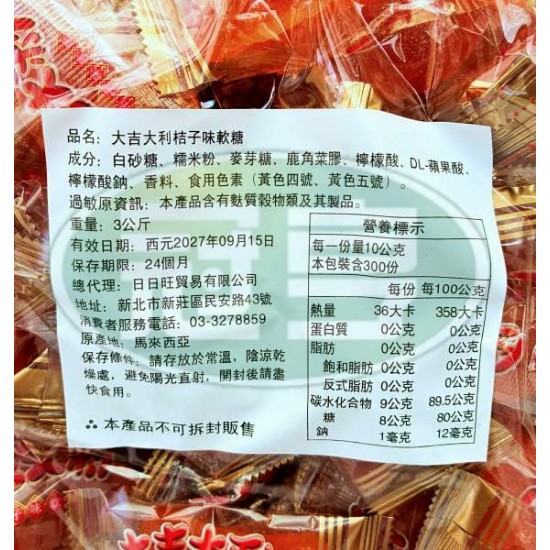 品名：大吉大利桔子味軟糖
成分：白砂糖、糯米粉、麥芽糖、鹿角菜膠、檸檬酸、DL-蘋果酸、
檸檬酸鈉、香料、食用色素（黃色四號、黃色五號）。
過敏原資訊：本產品含有麩質穀物類及其製品。
重量：3公斤
有效日期：西元2027年09月15日
保存期限：24個月
總代理：日日旺貿易有限公司
地址：新北市新莊區民安路43號
消費者服務電話：03-3278859
原產地：馬來西亞
保存條件：請存放於常溫，陰涼乾
燥處，避免陽光直射，開封後請盡
快食用。
本產品不可拆封販售
營養標示
每一份量10公克
本包裝含300份
每份 每100公克
熱量 36大卡 358大卡
蛋白質 0公克 0公克
脂肪 0公克 0公克
飽和脂肪 0公克 0公克
反式脂肪 0公克 0公克
碳水化合物 9公克 89.5公克
糖 8公克 80公克
鈉 1毫克 12毫克